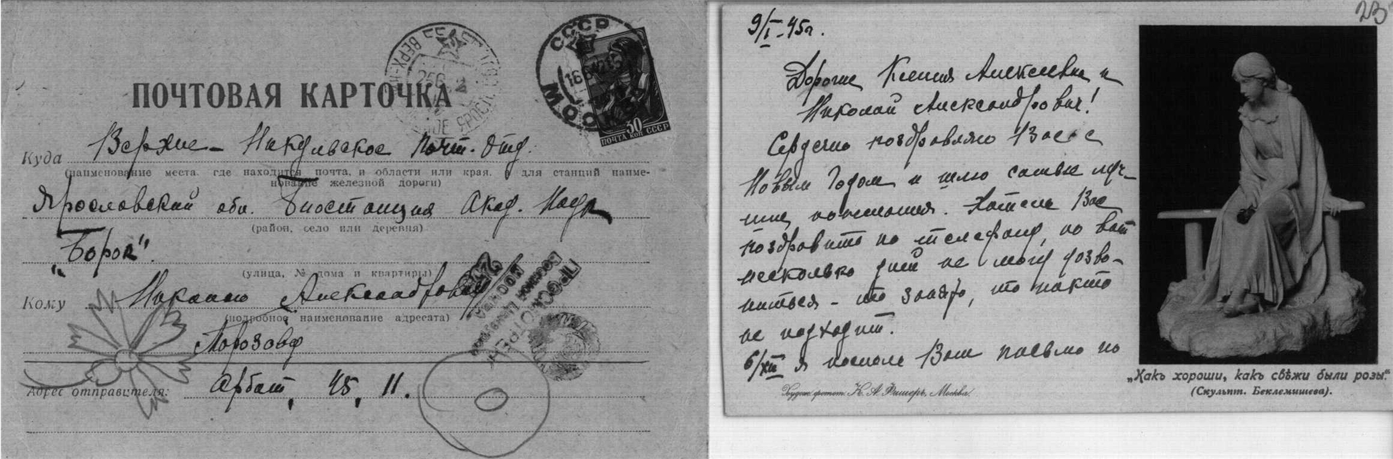 ПОЧТОВАЯ КАРТОЧКА
СССР
МОСКВА
30
ПОЧТА КОП СССР
Куда Верхне-Никульское Почт. Отд.
(наименование места, где находится почта, и области или края, для станций наиме-
нование железной дороги)
Ярославской обл. Биостанция Акад. Наук
(район, село или деревня)
"Борок".
(улица, № дома и квартиры)
Кому Николаю Александровичу
(подробное наименование адресата)
Морозову
ПРОСМОТРЕНО
Военной Цензурой
Адрес отправителя: Арбат, 45, 11.
23
9/I-45г.
Дорогие Ксения Алексеевна и
Николай Александрович!
Сердечно поздравляю Вас с
Новым Годом и шлю самые луч-
шие пожелания. Хотела Вас
поздравить по телефону, но вот
несколько дней не могу дозво-
ниться - то занято, то никто
не подходит.
6/XII я послала Вам письмо по
Художеств. К. А. Фишеръ, Москва.
„Какъ хороши, какъ свѣжи были розы."
(Скульпт. Беклемишева).